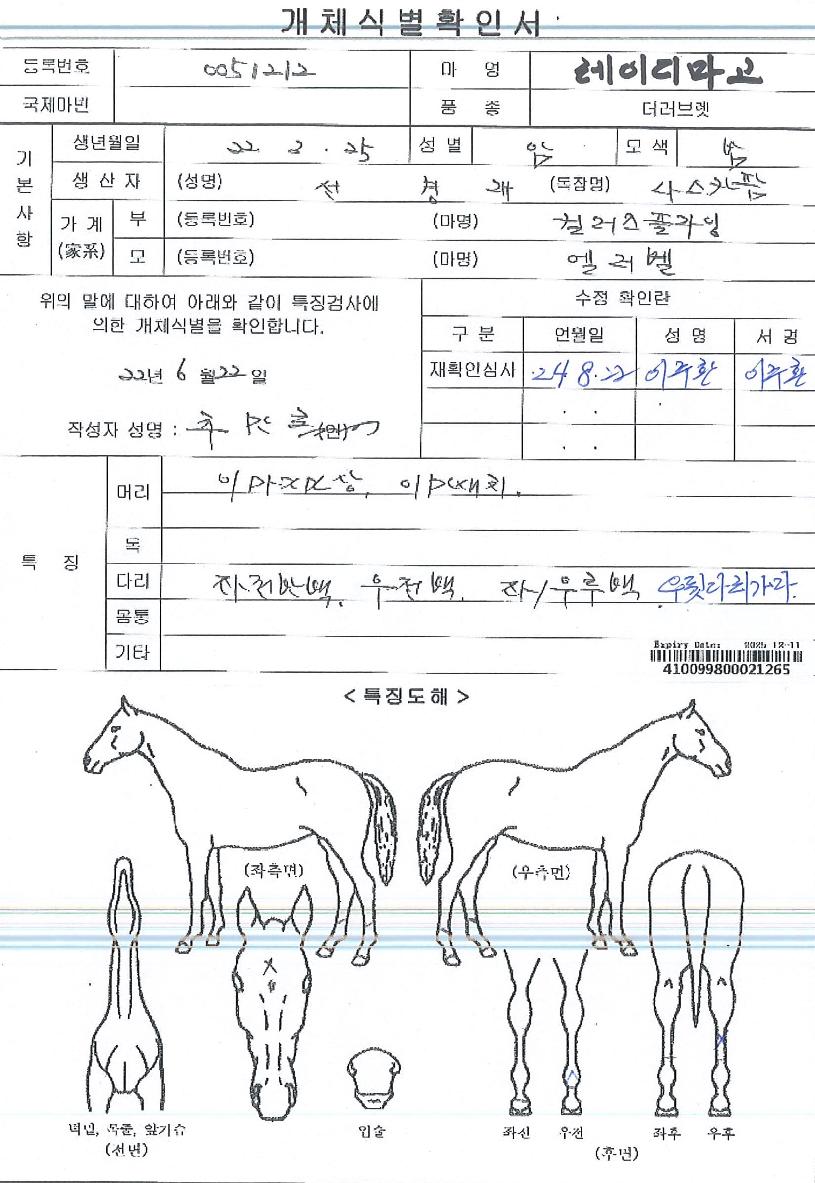 개체식별확인서
등록번호 0051212 마 명 레이디마고
국제마번 품 종 더러브렛
기본사항
생년월일 22. 3. 25 성별 암 모색 밤
생산자 (성명) 선 경 래 (목장명)
가계 (家系) 부 (등록번호) (마명) 컬러스플라잉
모 (등록번호) (마명) 엘러벨
위의 말에 대하여 아래와 같이 특징검사에
의한 개체식별을 확인합니다.
22년 6월 22일
작성자 성명 :
수정 확인란
구 분 연월일 성 명 서 명
재확인심사 24 8. 22 이주환 이주환
. .
. .
특 징
머리
목
다리 좌전반백, 우전백, 좌/우후백
몸통
기타
Expiry Date: 2025-12-11
410099800021265
< 특징도해 >
(좌측면) (우측면)
턱밑, 목줄, 앞가슴
(전면)
입술
좌전 우전 좌후 우후
(후면)